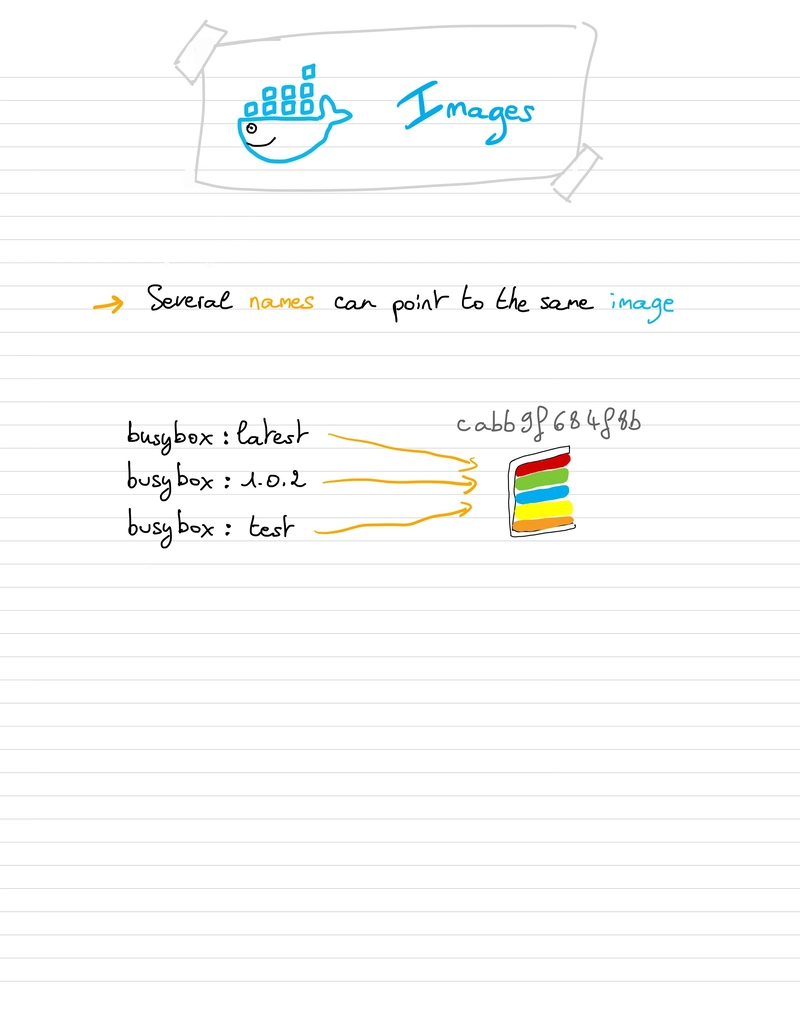 Images
→ Several names can point to the same image
cabb9f684f8b
busybox : latest
busybox : 1.0.2
busybox : test